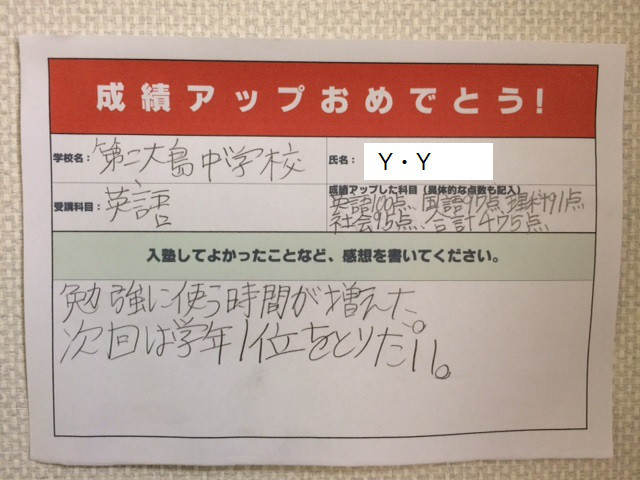 成績アップおめでとう!
学校名: 第二大島中学校
氏名: Y・Y
受講科目: 英語
成績アップした科目 (具体的な点数も記入)
英語100点、国語97点、理科91点
社会95点、合計475点
入塾してよかったことなど、感想を書いてください。
勉強に使う時間が増えた。
次回は学年1位をとりたい。